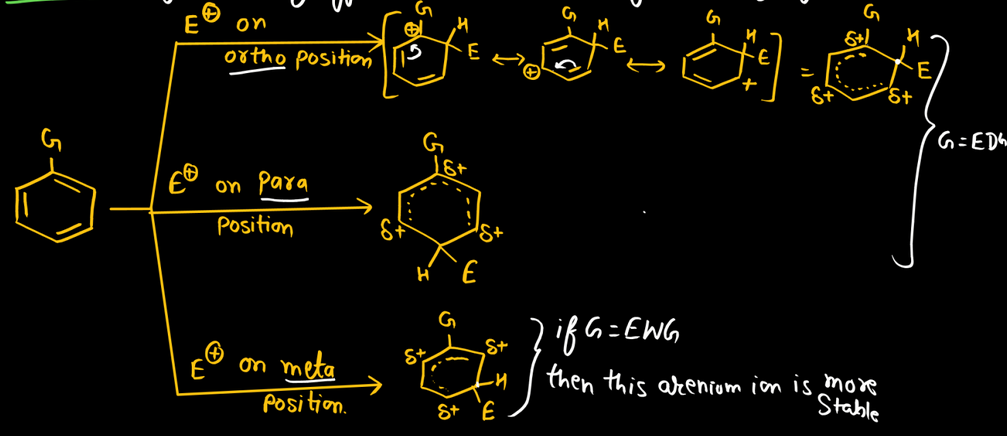 E⊕ on
ortho position
G
⊕
H
E
G
H
E
⊕
G
H
E
+
=
G
δ+
H
E
δ+
δ+
G = EDG
G
E⊕ on para
position
G
δ+
δ+
δ+
H
E
E⊕ on meta
position.
G
δ+
δ+
H
δ+
E
if G = EWG
then this arenium ion is more
stable